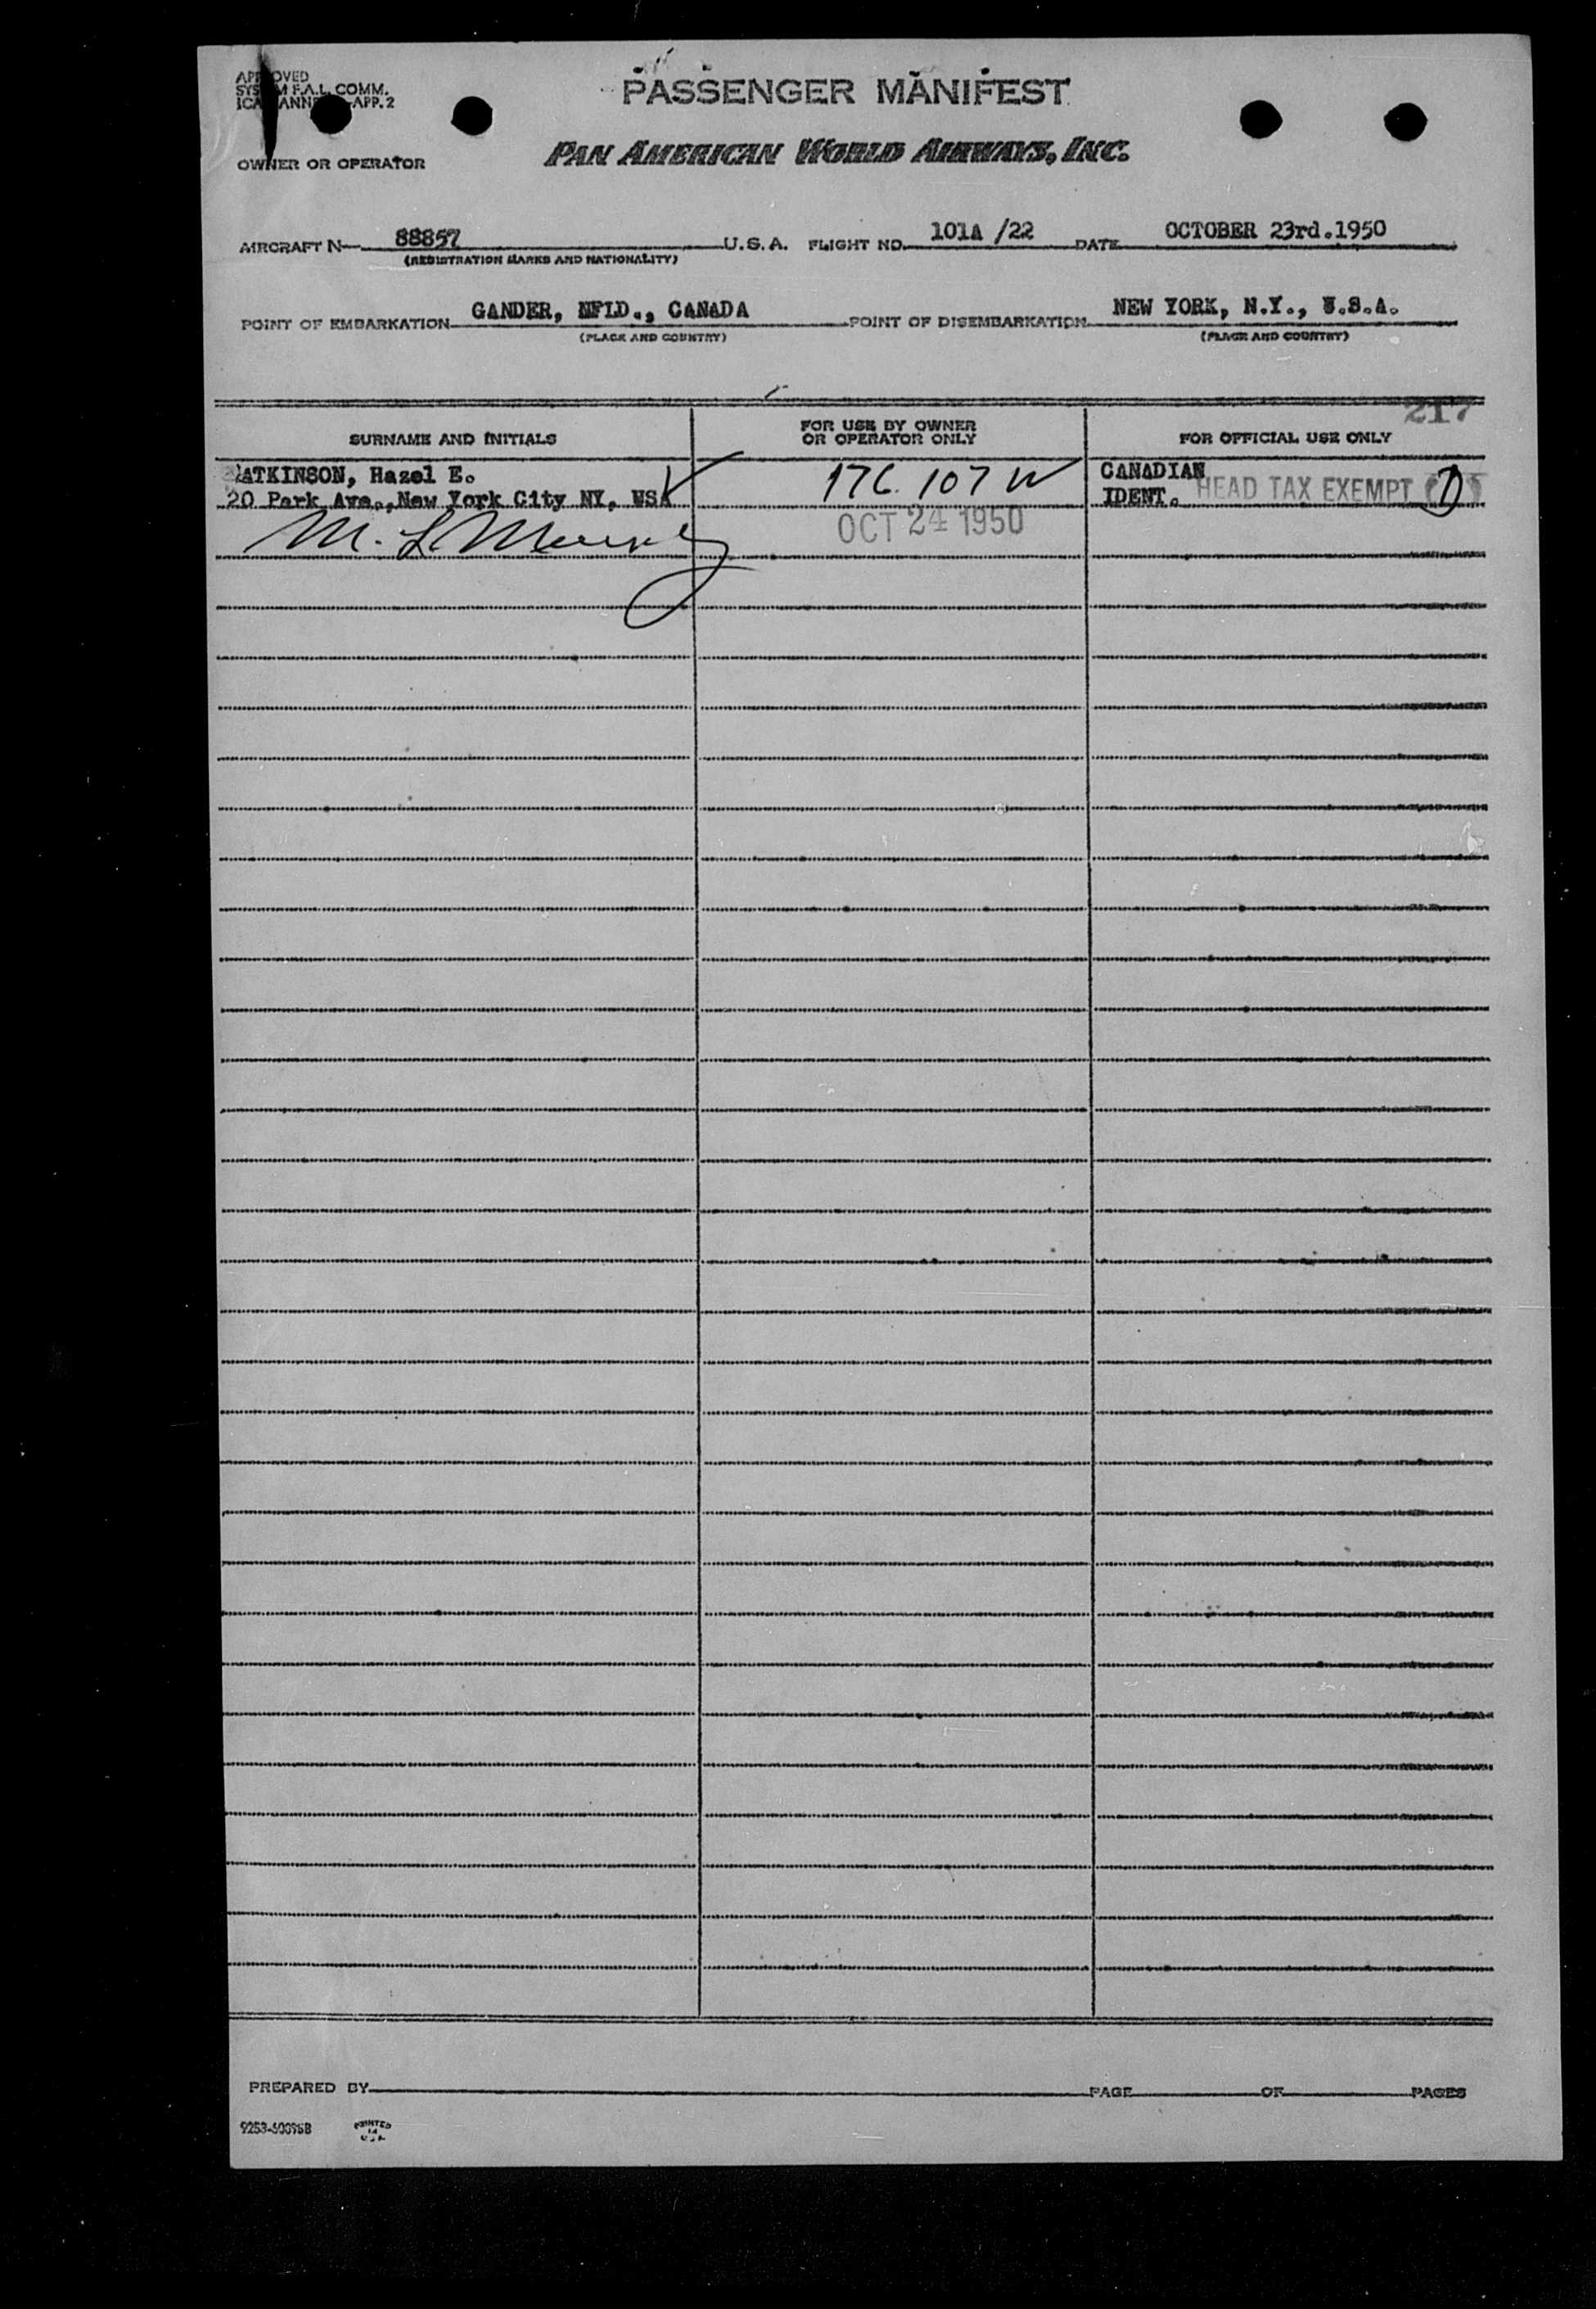 PASSENGER MANIFEST
PAN AMERICAN WORLD AIRWAYS, INC.
OWNER OR OPERATOR
AIRCRAFT N 88857 U.S.A. FLIGHT NO. 101A /22 DATE OCTOBER 23rd.1950
(REGISTRATION MARKS AND NATIONALITY)
POINT OF EMBARKATION GANDER, NFLD., CANADA POINT OF DISEMBARKATION NEW YORK, N.Y., U.S.A.
(PLACE AND COUNTRY) (PLACE AND COUNTRY)
217
SURNAME AND INITIALS FOR USE BY OWNER OR OPERATOR ONLY FOR OFFICIAL USE ONLY
ATKINSON, Hazel E. 176 107 W CANADIAN
20 Park Ave., New York City NY, USA IDENT. HEAD TAX EXEMPT
OCT 24 1950
PREPARED BY PAGE OF PAGES
PRINTED
IN
U S A